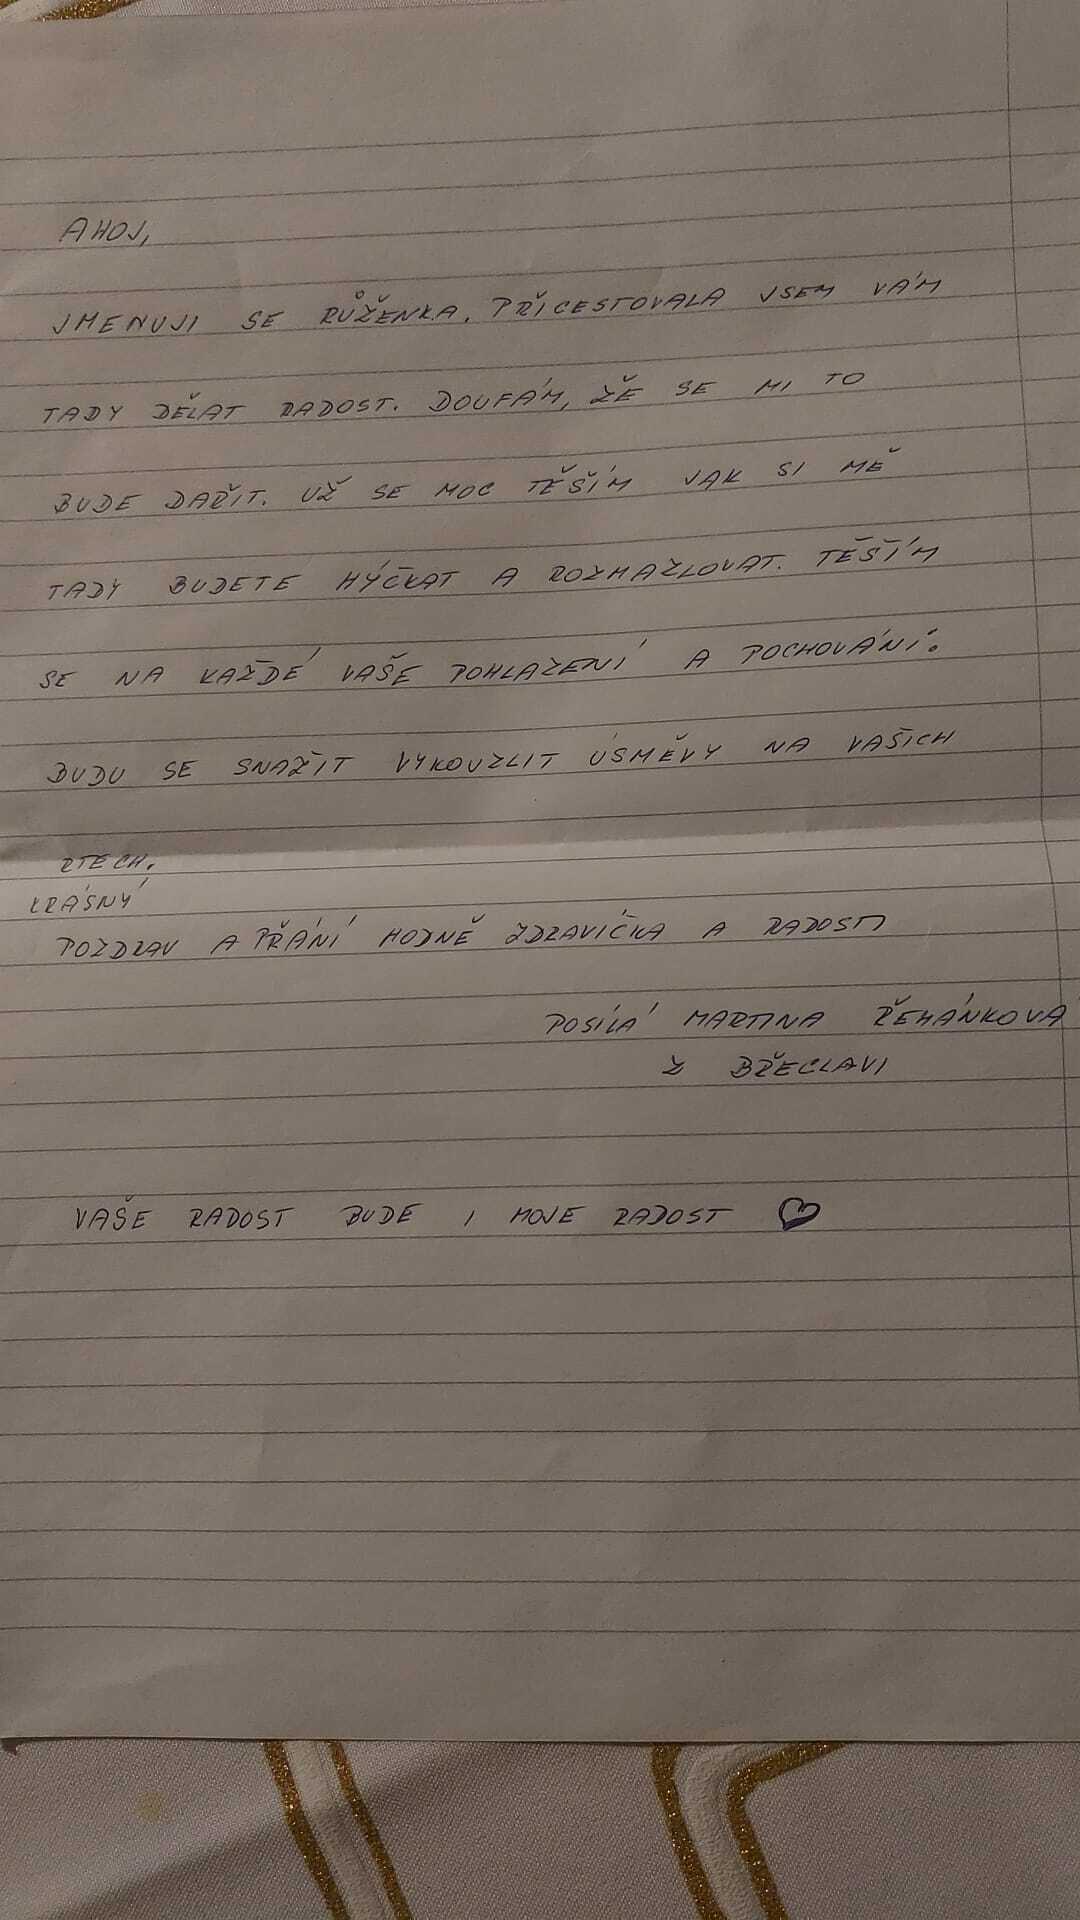 AHOJ,
JMENUJI SE RŮŽENKA. PŘICESTOVALA JSEM VÁM
TADY DĚLAT RADOST. DOUFÁM, ŽE SE MI TO
BUDE DAŘIT. UŽ SE MOC TĚŠÍM JAK SI MĚ
TADY BUDETE HÝČKAT A ROZMAZLOVAT. TĚŠÍM
SE NA KAŽDÉ VAŠE POHLAZENÍ A POCHOVÁNÍ.
BUDU SE SNAŽIT VYKOUZLIT ÚSMĚVY NA VAŠICH
RTECH.
KRÁSNÝ
POZDRAV A PŘÁNÍ HODNĚ ZDRAVÍČKA A RADOSTI
POSÍLÁ MARTINA ŘEHÁNKOVÁ
Z BŘECLAVI
VAŠE RADOST BUDE I MOJE RADOST ♡